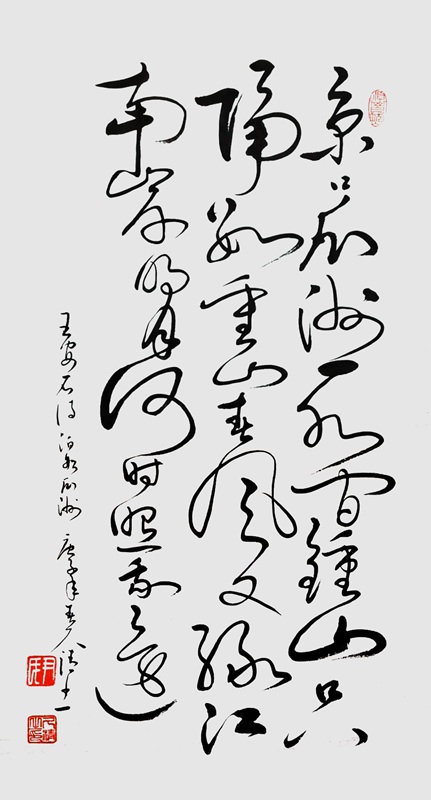 京口瓜洲一水间鍾山只
隔数重山春风又绿江
南岸明月何时照我还
王安石诗泊船瓜洲 庚子年春